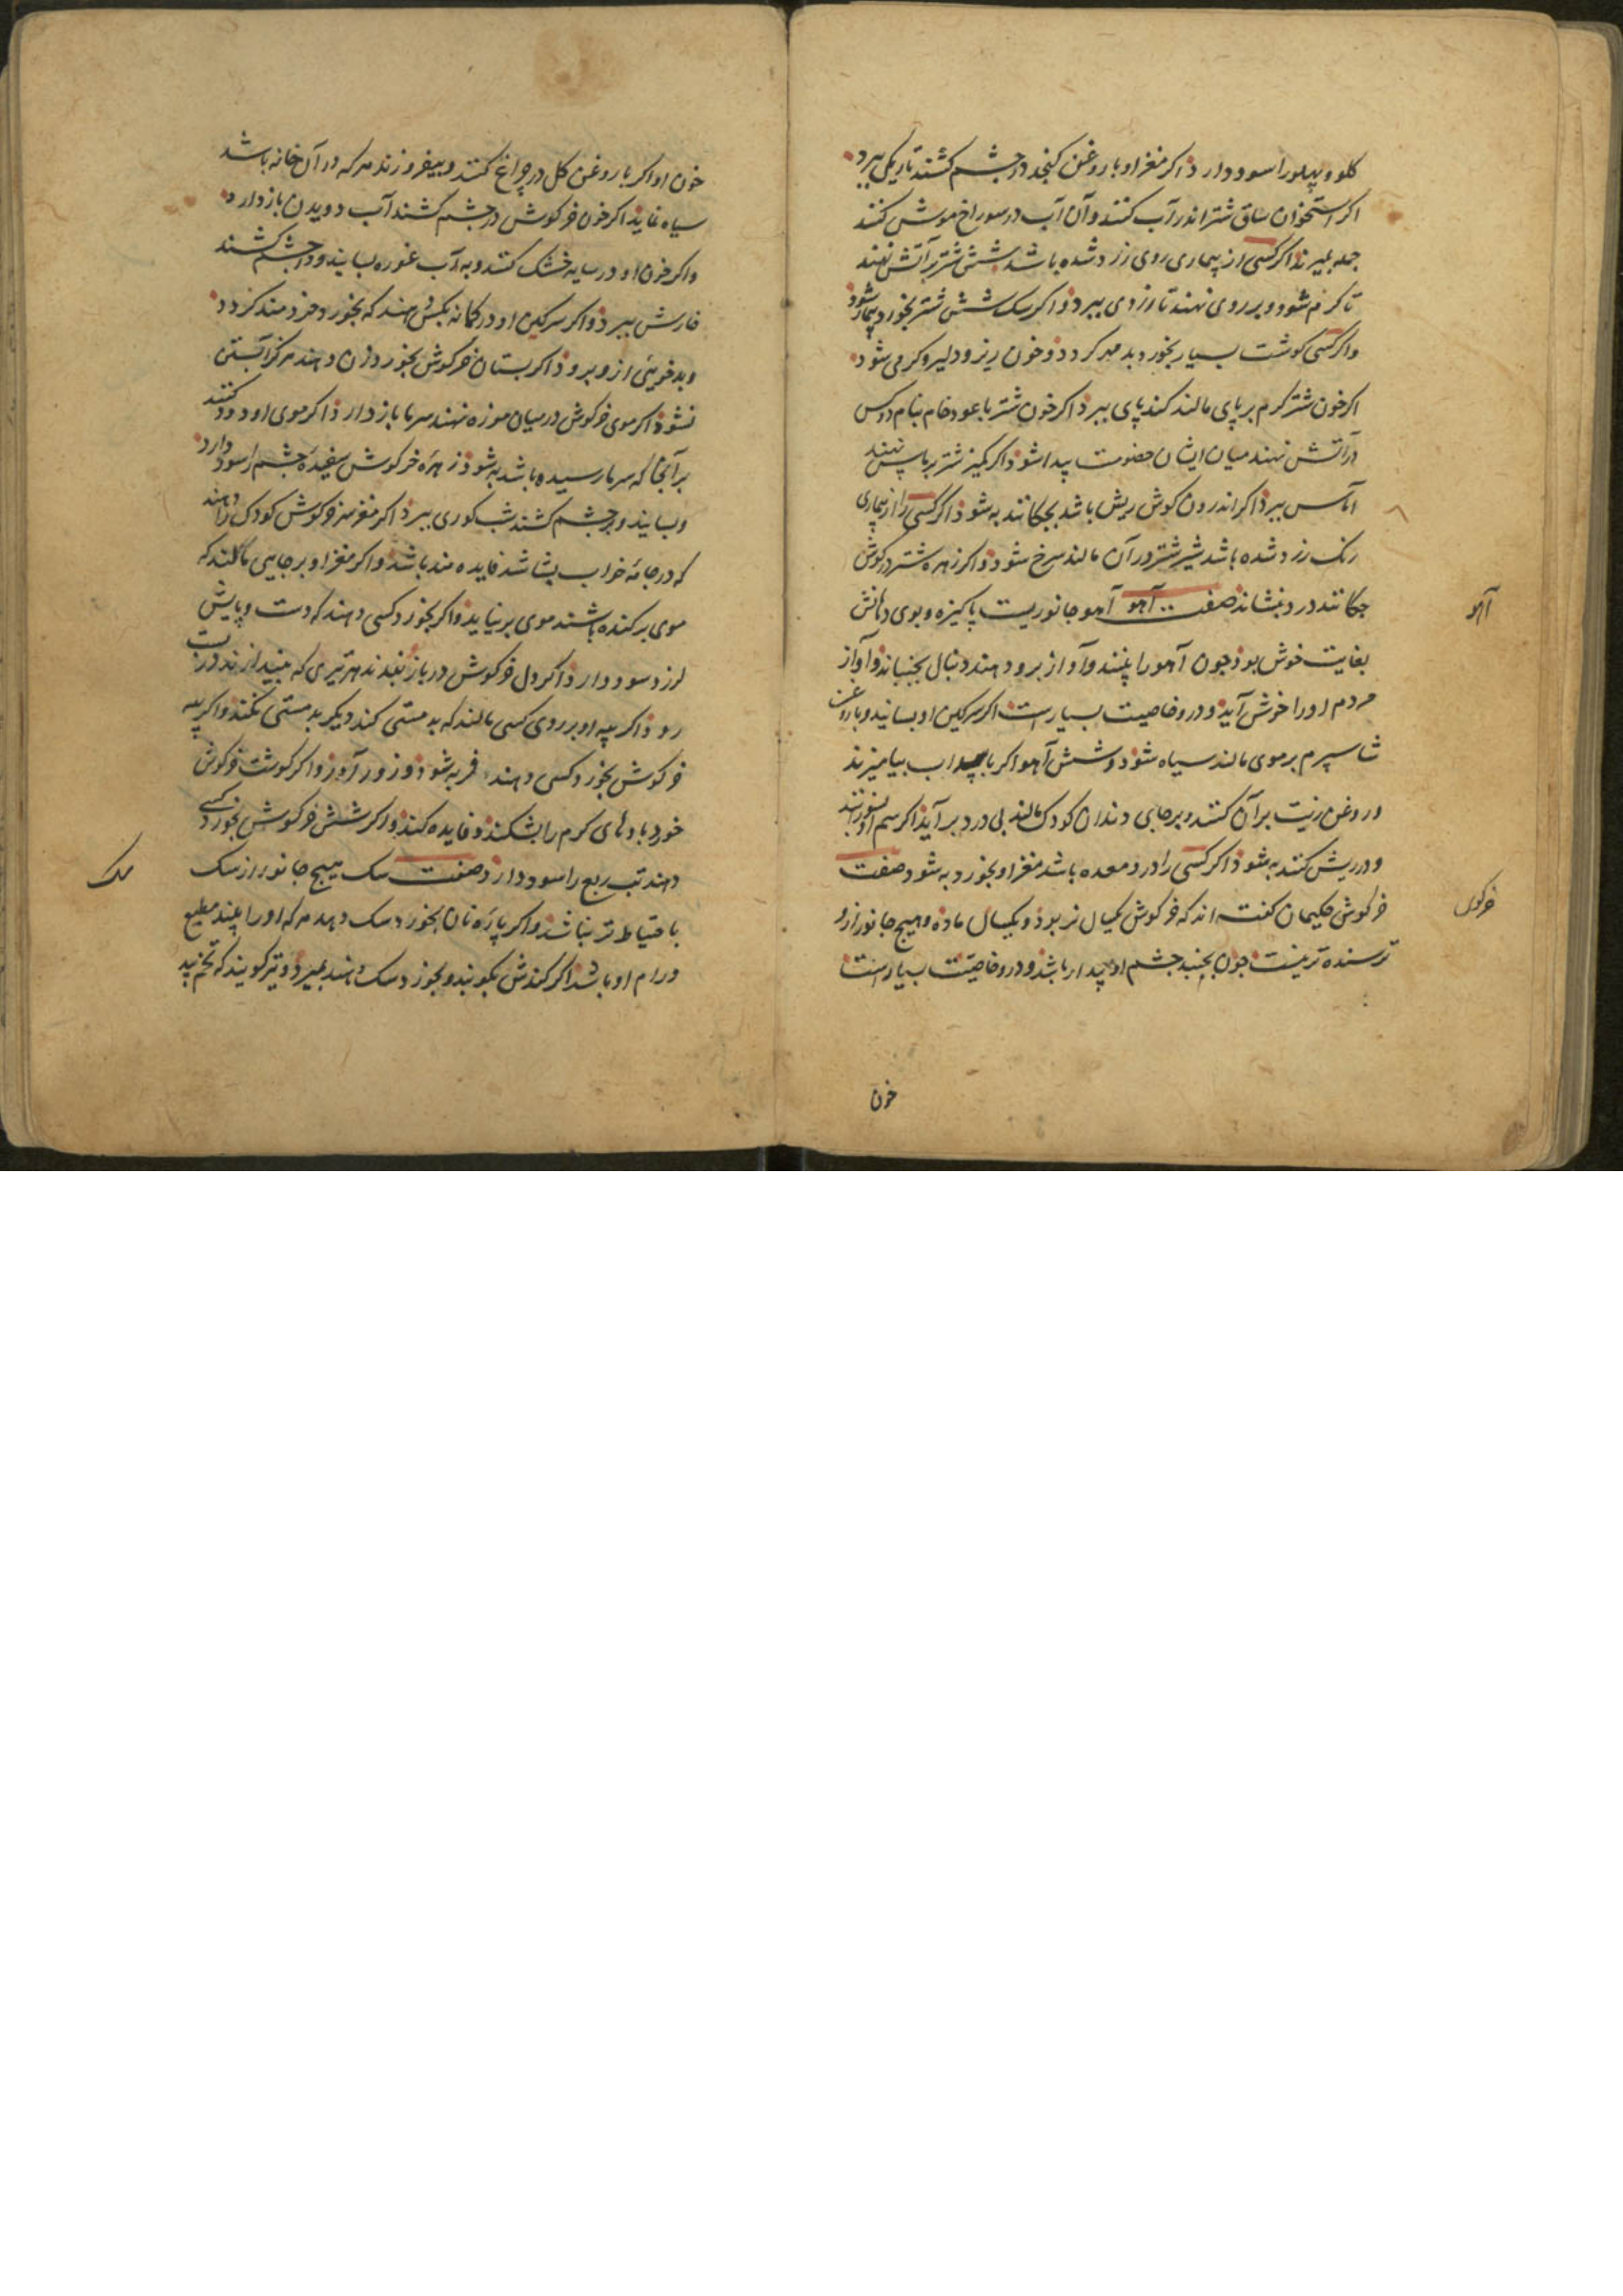 کلو و پهلو را سود دارد اکر مغز او با روغن کنجد در چشم کشند تاریکی ببرد
اکر استخوان ساق شتر اندر آب کنند و آن آب در سوراخ موش کنند
جمله بمیرند اکر کسی از بیماری روی زرد شده باشد شش شتر بر آتش نهند
تا کرم شود و بر روی نهند تا زردی ببرد و اکر سک شش شتر بخورد بیمار شود
و اکر کسی کوشت بسیار بخورد بد مهر کردد و خون ریز و دلیر و کرمی شود
اکر خون شتر کرم بر پای مالند کند پای ببرد اکر خون شتر با عود خام بنام دو کس
در آتش نهند میان ایشان خصومت پیدا شود اکر کمیز شتر بر آماس نهند
آماس ببرد اکر اندرون کوش ریش باشد بچکانند به شود اکر کسی را از بیماری
رنک زرد شده باشد شیر شتر در آن مالند سرخ شود و اکر زهره شتر در کوش
چکانند درد بنشاند صفت آهو آهو جانوریست پاکیزه و بوی دهانش
آهو
بغایت خوش بود چون آهو را بینند و آواز برو دهند دنبال بجنباند و آواز
مردم او را خوش آید و درو خاصیت بسیارست اکر سرکین او بسایند و با روغن
شاسپرم بر موی مالند سیاه شود و شش آهو اکر با بیامیزند
و روغن زیت بر آن کنند و بر جای دندان کودک مالند بی درد بر آید اکر سم او بسوزند
و در ریش کنند به شود اکر کسی را درد معده باشد مغز او بخورد به شود صفت
خرکوش حکیمان کفته اند که خرکوش یکسال نر بود و یکسال ماده و هیچ جانور ازو
خرکوش
ترسنده تر نیست چون بخسبد چشم او بیدار باشد و درو خاصیت بسیارست
خون
خون او اکر با روغن کل در چراغ کنند و بیفروزند هر که در آن خانه باشد
سیاه نماید اکر خون خرکوش در چشم کشند آب دویدن باز دارد
و اکر خون او در سایه خشک کنند و به آب غوره بسایند و در چشم کشند
خارش ببرد و اکر سرکین او در کمانه بکسی دهند که بخورد خردمند کردد
و بد خویی ازو برود اکر پستان خرکوش بخورد زن دهند هرکز آبستن
نشود اکر موی خرکوش در میان موزه نهند سرما باز دارد اکر موی او دود کنند
بر آنجا که سرما رسیده باشد به شود زهره خرکوش سفیده چشم را سود دارد
و بسایند و بر چشم کشند شب کوری ببرد اکر مغز سر خرکوش کودک را دهند
که در جامه خواب بشاشد فایده مند باشد و اکر مغز او بر جایی مالند که
موی برکنده باشند موی بر نیاید و اکر بخورد کسی دهند که دست و پایش
لرزد سود دارد اکر دل خرکوش در باز بندند هر تیری که بیندازند راست
رود اکر پیه او بر روی کسی مالند که بد مستی کند دیکر بد مستی نکند و اکر پیه
خرکوش بخورد کسی دهند فربه شود و زور آورد و اکر کوشت خرکوش
خورد بادهای کرم را بشکند و فایده کند و اکر شش خرکوش بخورد کسی
دهند تب ربع را سود دارد صفت سک هیچ جانور از سک
سک
با حتیاط تر نباشد و اکر پاره نان بخورد سک دهد هر که او را بیند مطیع
و رام او باشد اکر کندش بکوبند و بخورد سک دهند بمیرد و نیز کویند که تخم بید